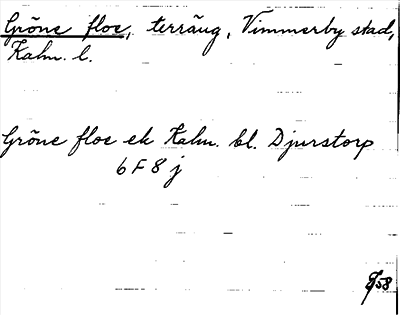 Gröne floe, terräng, Vimmerby stad,
Kalm. l.
Gröne floe ek Kalm. bl. Djurstorp
6 F 8 j
58